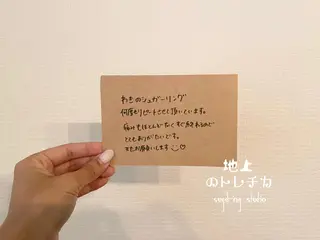 わきのシュガーリング
何度もリピートさせて頂いています。
痛みもほとんどなくすぐ終わるので
とてもありがたいです。
またお願いします
地上
のトレチカ
sugaring studio